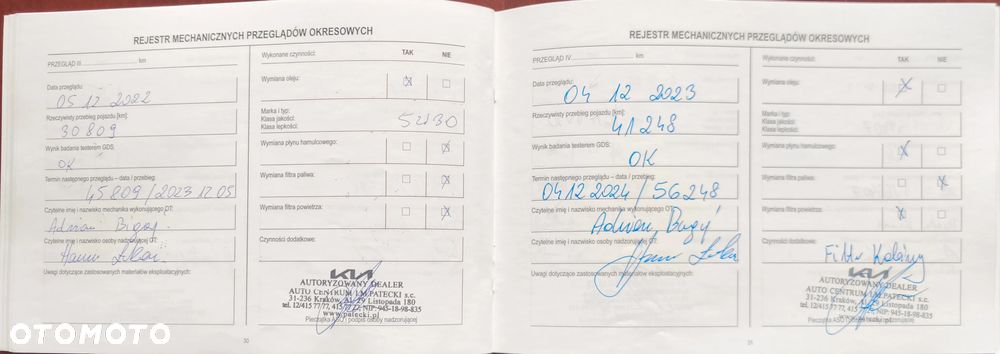 REJESTR MECHANICZNYCH PRZEGLĄDÓW OKRESOWYCH
PRZEGLĄD III km
Data przeglądu:
05 12 2022
Rzeczywisty przebieg pojazdu [km]:
30809
Wynik badania testerem GDS:
OK
Termin następnego przeglądu – data / przebieg:
45809/2023 12 05
Czytelne imię i nazwisko mechanika wykonującego OT:
Adrian
Czytelne imię i nazwisko osoby nadzorującej OT:
Uwagi dotyczące zastosowanych materiałów eksploatacyjnych:
Wykonane czynności: TAK NIE
Wymiana oleju: X
Marka i typ:
Klasa jakości:
Klasa lepkości:
5W30
Wymiana płynu hamulcowego: X
Wymiana filtra paliwa: X
Wymiana filtra powietrza: X
Czynności dodatkowe:
KIA
AUTORYZOWANY DEALER
AUTO CENTRUM I.M.PATECKI s.c.
31-236 Kraków, Al. 29 Listopada 180
tel. 12/415 77 77, 415 NIP: 945-18-98-835
www.patecki.pl
Pieczątka ASO i podpis osoby nadzorującej
30
REJESTR MECHANICZNYCH PRZEGLĄDÓW OKRESOWYCH
PRZEGLĄD IV km
Data przeglądu:
04 12 2023
Rzeczywisty przebieg pojazdu [km]:
41248
Wynik badania testerem GDS:
OK
Termin następnego przeglądu – data / przebieg:
04 12 2024/56248
Czytelne imię i nazwisko mechanika wykonującego OT:
Adrian
Czytelne imię i nazwisko osoby nadzorującej OT:
Uwagi dotyczące zastosowanych materiałów eksploatacyjnych:
Wykonane czynności: TAK NIE
Wymiana oleju: X
Marka i typ:
Klasa jakości:
Klasa lepkości:
Wymiana płynu hamulcowego: X
Wymiana filtra paliwa: X
Wymiana filtra powietrza: X
Czynności dodatkowe:
Filtr
KIA
AUTORYZOWANY DEALER
AUTO CENTRUM I.M.PATECKI s.c.
31-236 Kraków, Al. 29 Listopada 180
tel. 12/415 77 77, 415 NIP: 945-18-98-835
www.patecki.pl
31
OTOMOTO